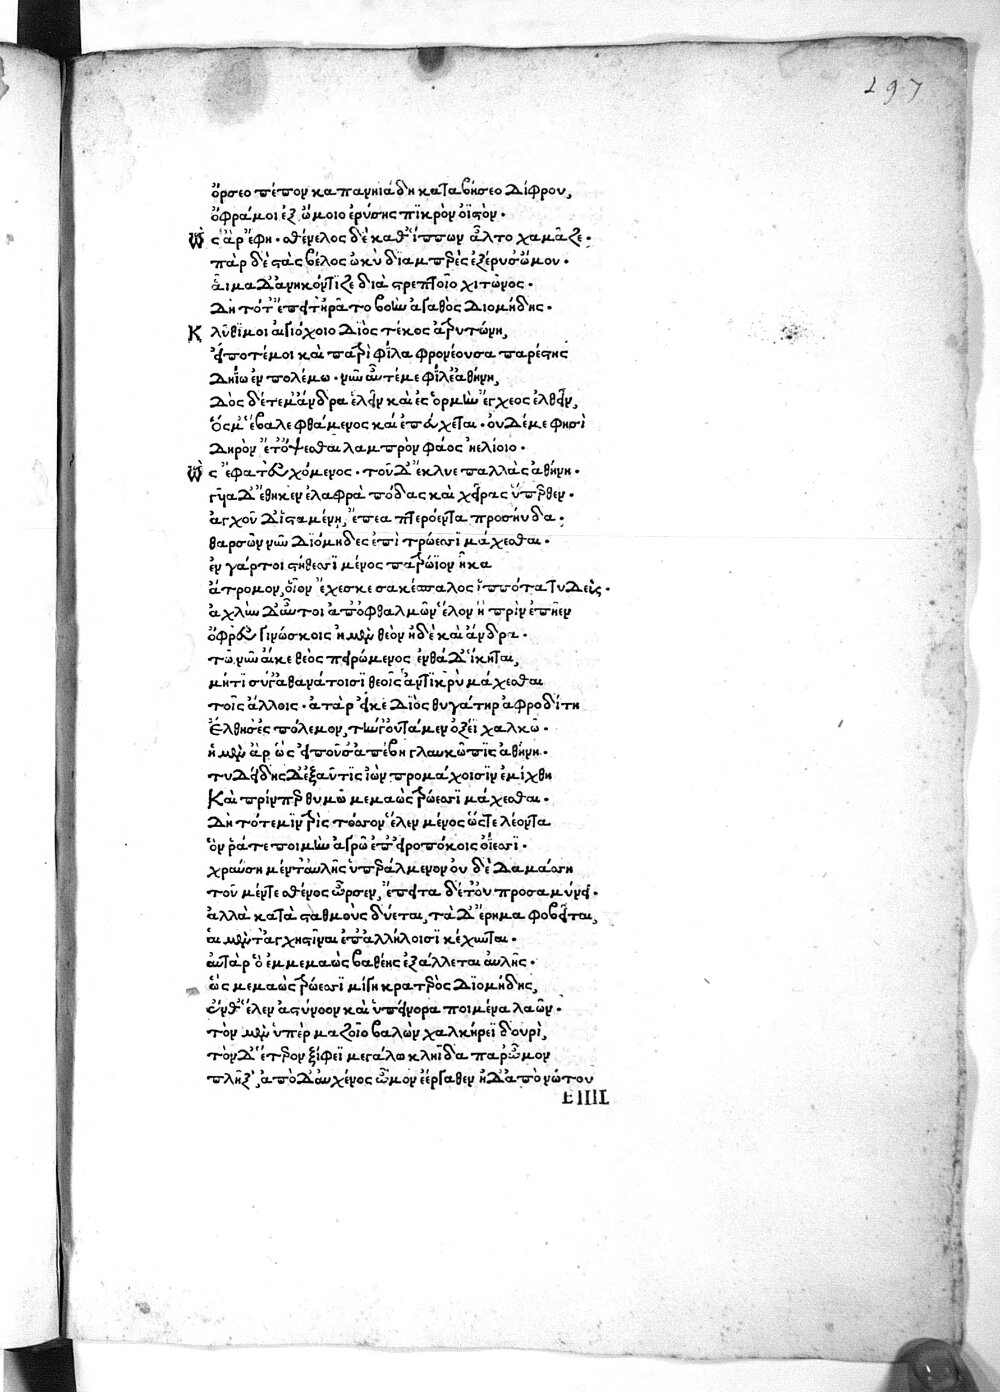 297
ὄρσεο πέπον καπανηϊάδη καταβήσεο δίφρου,
ὄφρα μοι ἐξ ὤμοιο ἐρύσῃς πικρὸν ὀϊστόν.
Ὣς ἀρ ἔφη. σθένελος δὲ καθ' ἵππων ἆλτο χαμᾶζε.
πὰρ δὲ στὰς βέλος ὠκὺ διαμπερὲς ἐξέρυσ' ὤμου.
αἷμα δ' ἀνηκόντιζε διὰ στρεπτοῖο χιτῶνος.
δὴ τότ' ἔπειτ' ἠρᾶτο βοὴν ἀγαθὸς διομήδης.
Κλῦθί μοι αἰγιόχοιο διὸς τέκος ἀτρυτώνη,
εἴποτέ μοι καὶ πατρὶ φίλα φρονέουσα παρέστης
δηΐω ἐν πολέμω. νῦν αὖτ' ἐμὲ φῖλε ἀθήνη,
δὸς δέ τέ μ' ἄνδρα ἑλεῖν καὶ ἐς ὁρμὴν ἔγχεος ἐλθεῖν,
ὅς μ' ἔβαλε φθάμενος καὶ ἐπεύχεται. οὐδέ με φησὶ
δηρὸν ἔτ' ὄψεσθαι λαμπρὸν φάος ἠελίοιο.
Ὣς ἔφατ' εὐχόμενος. τοῦ δ' ἔκλυε παλλὰς ἀθήνη.
γυῖα δ' ἔθηκεν ἐλαφρὰ πόδας καὶ χεῖρας ὕπερθεν.
ἀγχοῦ δ' ἱσταμένη, ἔπεα πτερόεντα προσηύδα.
θαρσῶν νῦν διόμηδες ἐπὶ τρώεσσι μάχεσθαι.
ἐν γάρ τοι στήθεσσι μένος πατρώϊον ἧκα
ἄτρομον, οἷον ἔχεσκε σακέσπαλος ἱππότα τυδεύς.
ἀχλὺν δ' αὖ τοι ἀπ' ὀφθαλμῶν ἕλον ἣ πρὶν ἐπῆεν
ὄφρ' εὖ γινώσκοις ἠμὲν θεὸν ἠδὲ καὶ ἄνδρα.
τῶ νῦν αἴκε θεὸς πειρώμενος ἐνθάδ' ἵκηται,
μήτι σύγ' ἀθανάτοισι θεοῖς ἀντικρὺ μάχεσθαι
τοῖς ἄλλοις. ἀτὰρ εἴκε διὸς θυγάτηρ ἀφροδίτη
ἔλθησ' ἐς πόλεμον, τήν γ' οὐτάμεν ὀξέϊ χαλκῶ.
ἡ μὲν ἂρ ὣς εἰποῦσ' ἀπέβη γλαυκῶπις ἀθήνη.
τυδείδης δ' ἐξαῦτις ἰὼν προμάχοισιν ἐμίχθη
Καὶ πρίν περ θυμῶ μεμαὼς τρώεσσι μάχεσθαι.
δὴ τότε μιν τρὶς τόσσον ἕλεν μένος ὥς τε λέοντα
ὅν ῥά τε ποιμὴν ἀγρῶ ἐπ' εἰροπόκοις ὀΐεσσι.
χραύση μέν τ' αὐλῆς ὑπεράλμενον οὐδὲ δαμάσση
τοῦ μέν τε σθένος ὦρσεν, ἔπειτα δέ τ' οὐ προσαμύνει.
ἀλλὰ κατὰ σταθμοὺς δύεται, τὰ δ' ἔρημα φοβεῖται,
αἱ μέν τ' ἀγχηστῖναι ἐπ' ἀλλήλοισι κέχυνται.
αὐτὰρ ὁ ἐμμεμαὼς βαθέης ἐξάλλεται αὐλῆς.
ὣς μεμαὼς τρώεσσι μίγη κρατερὸς διομήδης,
ἔνθ' ἕλεν ἀστύνοον καὶ ὑπείνορα ποιμένα λαῶν.
τὸν μὲν ὑπὲρ μαζοῖο βαλὼν χαλκήρεϊ δουρὶ,
τὸν δ' ἕτερον ξίφεϊ μεγάλω κληῖδα παρ' ὦμον
πλῆξ', ἀπὸ δ' αὐχένος ὦμον ἐέργαθεν ἠδ' ἀπὸ νώτου
EIIII